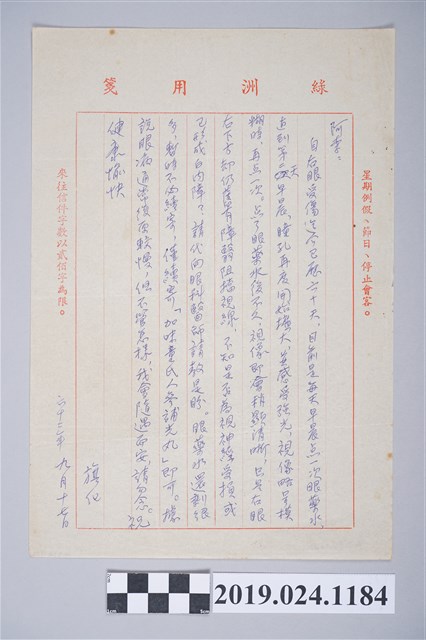 綠洲用箋
星期例假、節日、停止會客。
阿季：
自右眼受傷迄今已歷六十天，目前是每天早晨点一次眼藥水，
直到第二天早晨，瞳孔再度開始擴大，並感受強光、視像略呈模
糊時，再点一次。点了眼藥水後不久，視像即會稍顯清晰，只是右眼
右下方却仍舊有障翳阻擋視線，不知是否為視神經受損或
已形成白內障了，請代向眼科醫師請教是盼。眼藥水還剩很
多，暫時不必續寄，繼續寄「加味董氏人參補光丸」即可。據
說眼病通常復原較慢，但不管怎樣，我會隨遇而安，請勿念。祝
健康愉快
旗化
六十二年九月十七日
來往信件字數以貳佰字為限。
2019.024.1184